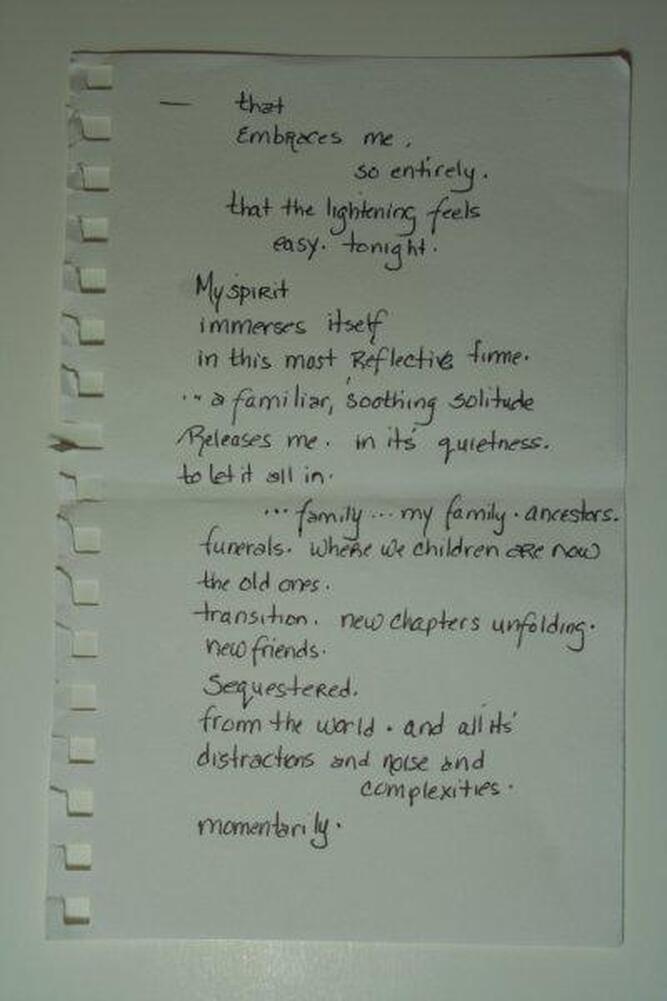 — that
EmbRaces me.
so entirely.
that the lightening feels
easy. tonight.
My spiRit
immerses itself
in this most Reflective time.
... a familiar, soothing solitude
Releases me. in its' quietness.
to let it all in.
... family ... my family. ancestors.
funerals. wheRe we children aRe now
the old ones.
transition. new chapters unfolding.
new friends.
SequesteRed.
from the world. and all its'
distractions and noise and
complexities.
momentarily.